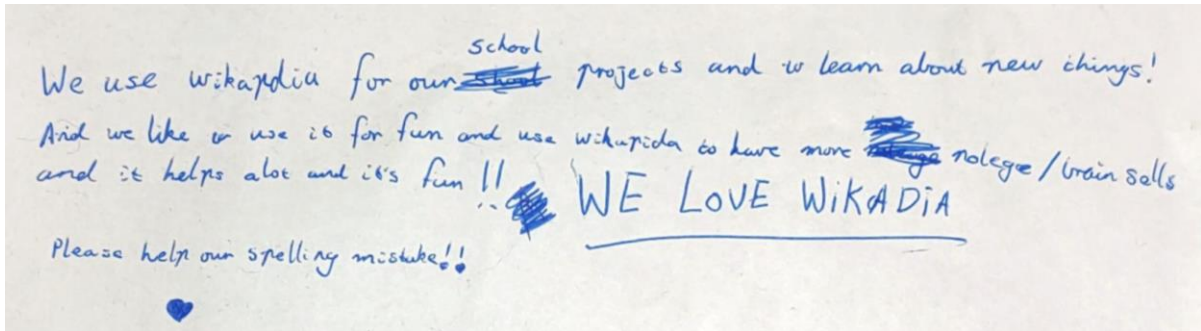 We use wikapdia for our school projects and to learn about new things!
And we like to use it for fun and use wikapida to have more nolegge/brain sells
and it helps alot and it's fun!!
WE LOVE WiKADiA
Please help our spelling mistake!!